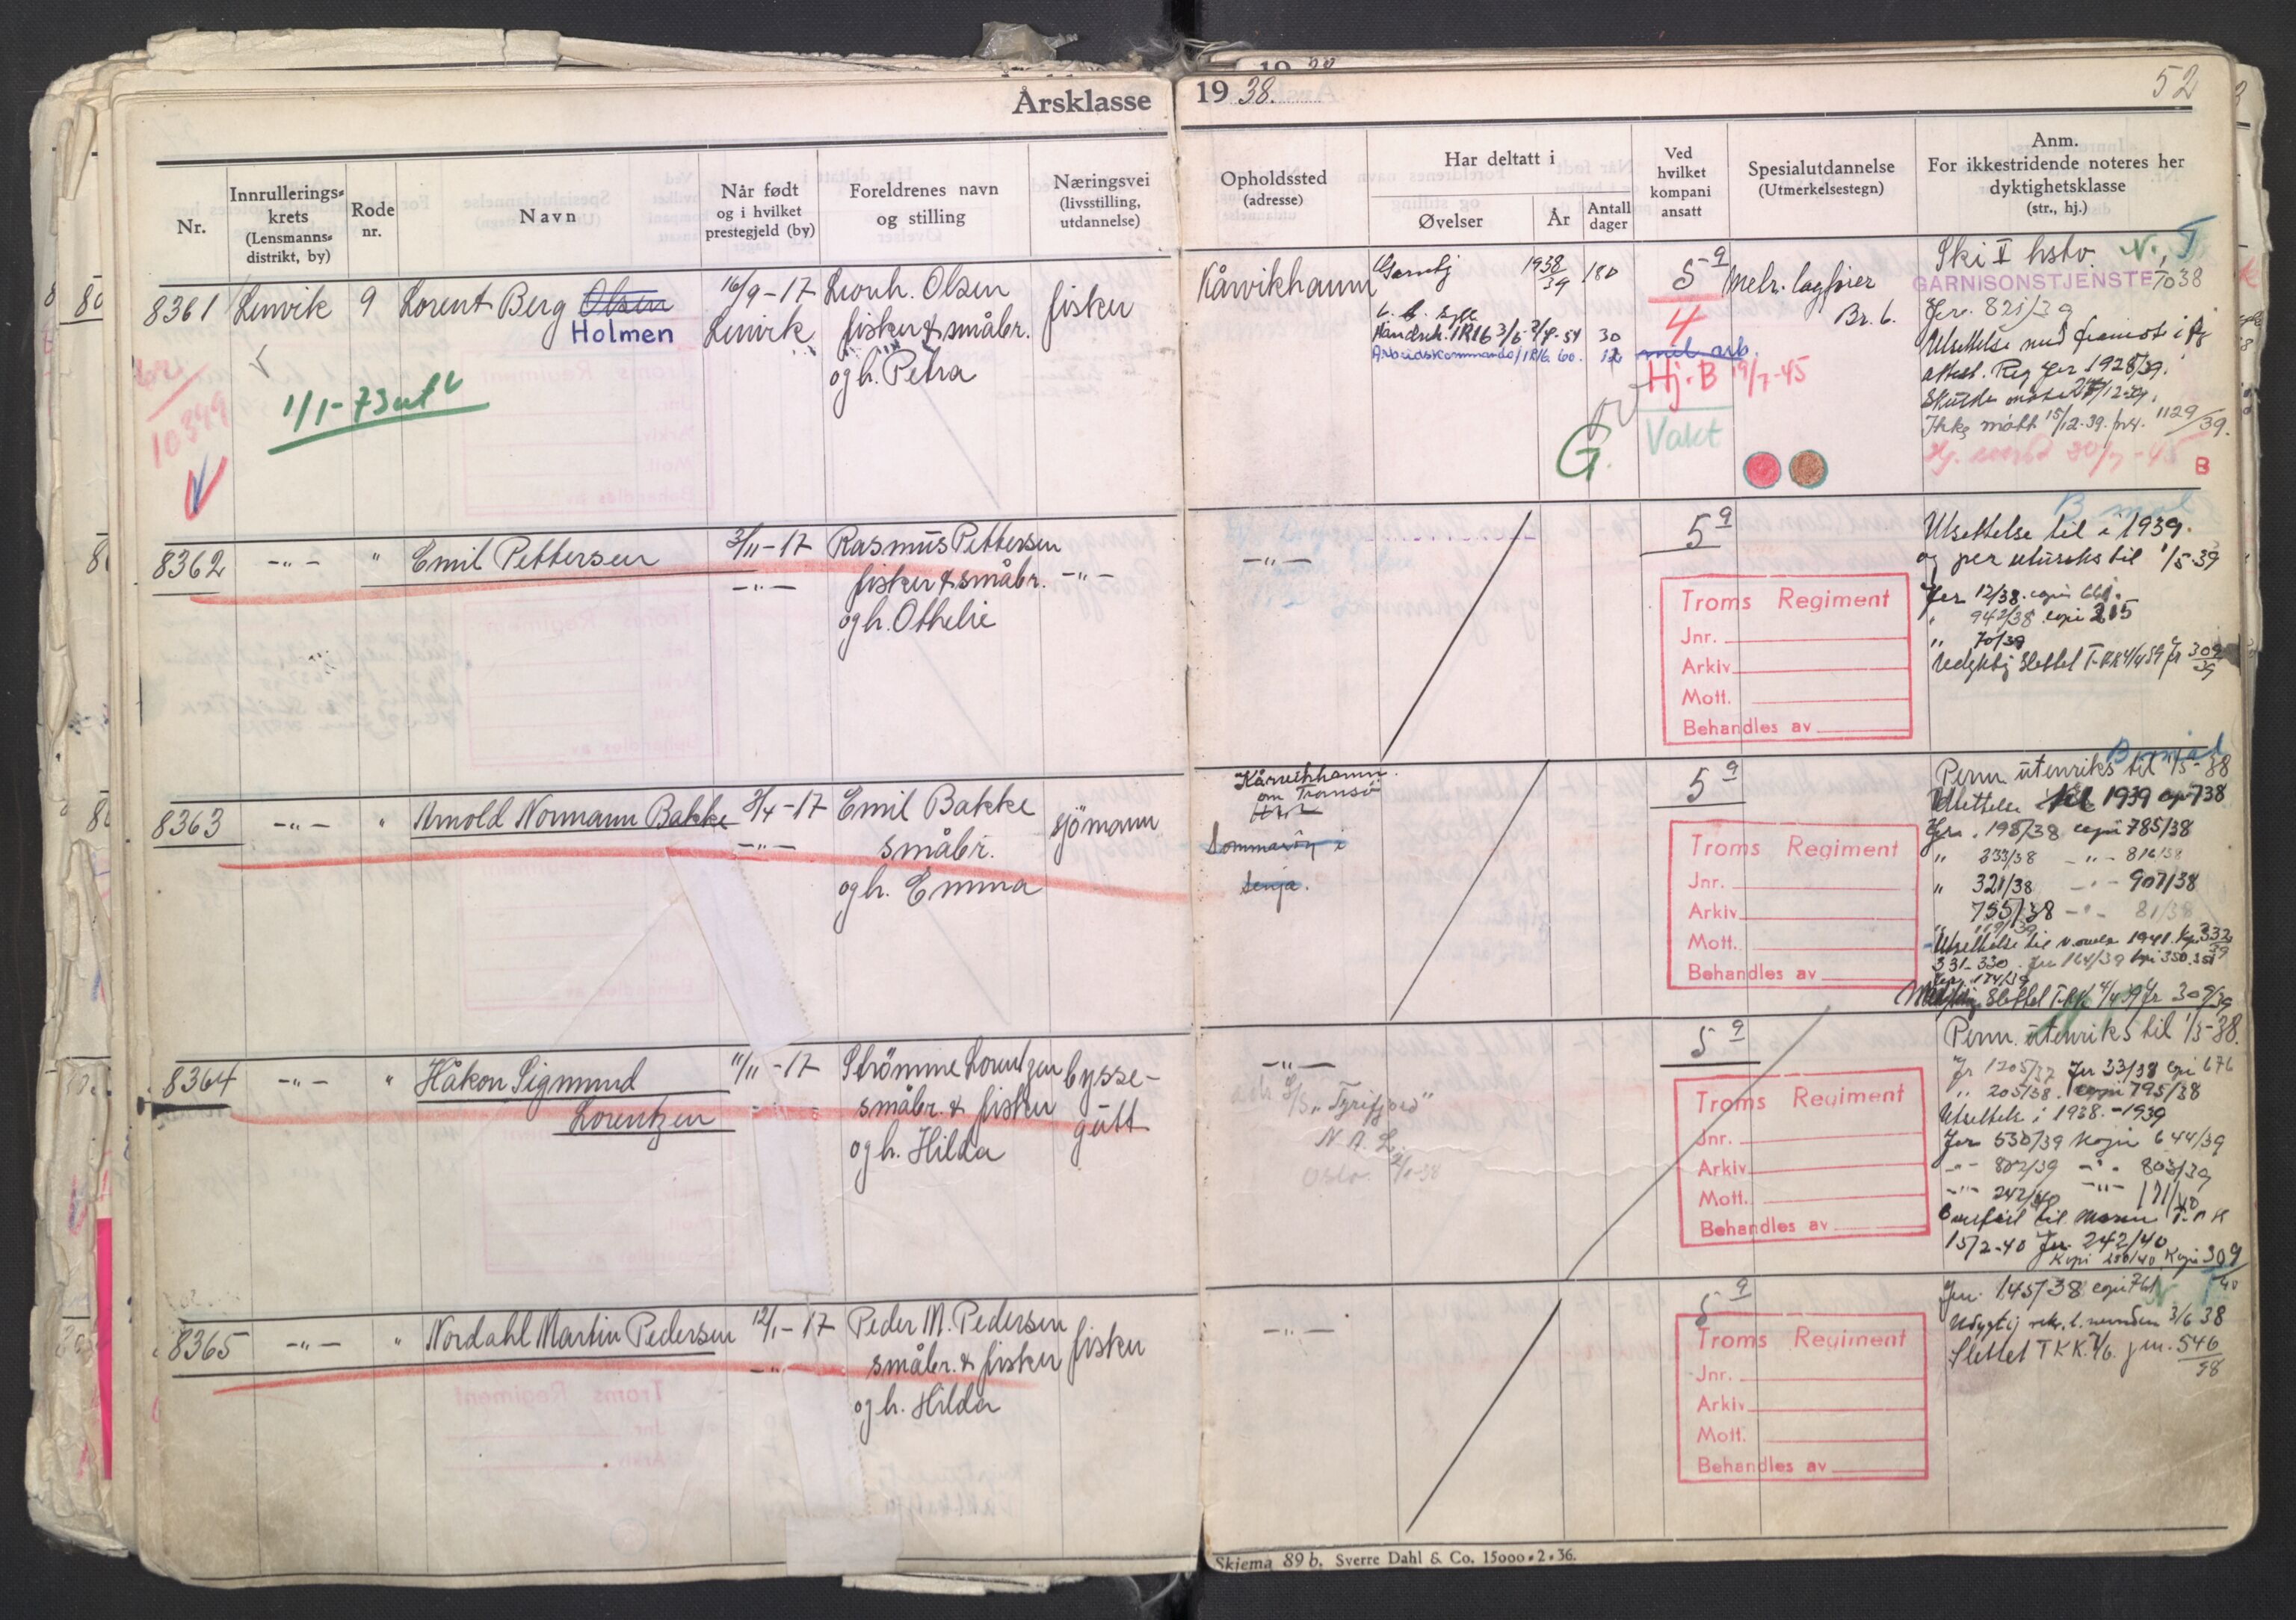 Årsklasse 19 38.
52
Nr.
Innrullerings-
krets
(Lensmanns-
distrikt, by)
Rode
nr.
Navn
Når født
og i hvilket
prestegjeld (by)
Foreldrenes navn
og stilling
Næringsvei
(livsstilling,
utdannelse)
Opholdssted
(adresse)
Har deltatt i
Øvelser
År
Antall
dager
Ved
hvilket
kompani
ansatt
Spesialutdannelse
(Utmerkelsestegn)
Anm.
For ikkestridende noteres her
dyktighetsklasse
(str., hj.)
8361 Lenvik 9 Lorent Berg Olsen 16/9-17 Leonh. Olsen fisker
Holmen Lenvik fisker & småbr.
og h. Petra
1/1-73 utl
10399
Kårvikhamn
1938/39 180
Håndvk. IR16 30
Arbeidskommando/IR16. 60. 12
5 9
4
mil. arb.
Hj.B 19/7-45
Vakt
G.
Br. 6.
Ski II hstv. N.
GARNISONSTJENSTE 7038
Jnr. 821/39
Utsettelse
attest. Reg Jnr 1928/39.
Ikke møtt 15/12-39. 1129/39.
B
8362 -"- " Emil Pettersen 2/11-17 Rasmus Pettersen
-"- fisker & småbr. -"-
og h. Othelie
-"-
5 9
Utsettelse til i 1939.
og per uturiks til 1/5-39
Jnr 12/38. copi 661.
" 942/38 copi 215
" 70/39
Slettet T-KK 4/4 39 Jr 309/39
Troms Regiment
Jnr.
Arkiv
Mott.
Behandles av
8363 -"- " Arnold Normann Bakke 3/4-17 Emil Bakke sjömann
-"- småbr.
og h. Emma
Kårvikhamn.
om Tromsö
Sommaröy i
Senja.
5 9
Perm utenriks til 1/5-38
Utsettelse til 1939 copi 738
Jnr. 195/38 copi 785/38
" 333/38 -"- 816/38
" 321/38 -"- 907/38
755/38 -"- 81/38
Utsettelse til 1941. Kopi 332/39
331-330. Jnr 164/39 kopi 350.351
Slettet T-KK 4/4 39 Jr 309/39
Troms Regiment
Jnr.
Arkiv
Mott.
Behandles av
8364 -"- " Håkon Sigmund 11/11-17 Strömme Lorentzen bysse-
Lorentzen småbr. & fisker gutt
og h. Hilda
-"-
adr S/S "Tyrifjord"
N. A. L.
Oslo.
5 9
Perm. utenriks til 1/5-38.
Jr 1205/37 Jnr 33/38 copi 676
" 205/38. copi 795/38
Utsettelse i 1938.-1939
Jnr 530/39 Kopi 644/39
-"- 802/39 -"- 803/39
-"- 242/40 -"- 171/40
Overført til
15/2-40 Jnr. 242/40
Kopi 230/40 Kopi 309/40
Troms Regiment
Jnr.
Arkiv
Mott.
Behandles av
8365 -"- " Nordahl Martin Pedersen 12/1-17 Peder M. Pedersen fisker
-"- småbr. & fisker
og h. Hilda
-"-
5 9
Jnr. 145/38 copi 761
Udygtig 3/6 38
Slettet TKK. 7/6. jnr. 546/38
Troms Regiment
Jnr.
Arkiv
Mott.
Behandles av
Skjema 89 b. Sverre Dahl & Co. 15000.2.36.